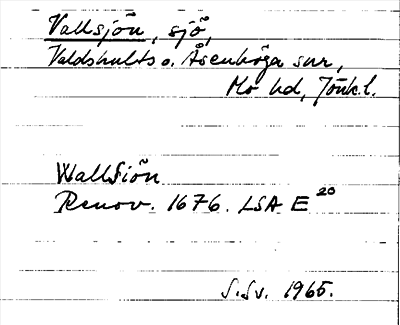 Vallsjön, sjö,
Valdshults o. Åsenhöga snr,
Mo hd, Jönk.l.
Wallsiön
Renov. 1676. LSA E 20
S.Sv. 1965.